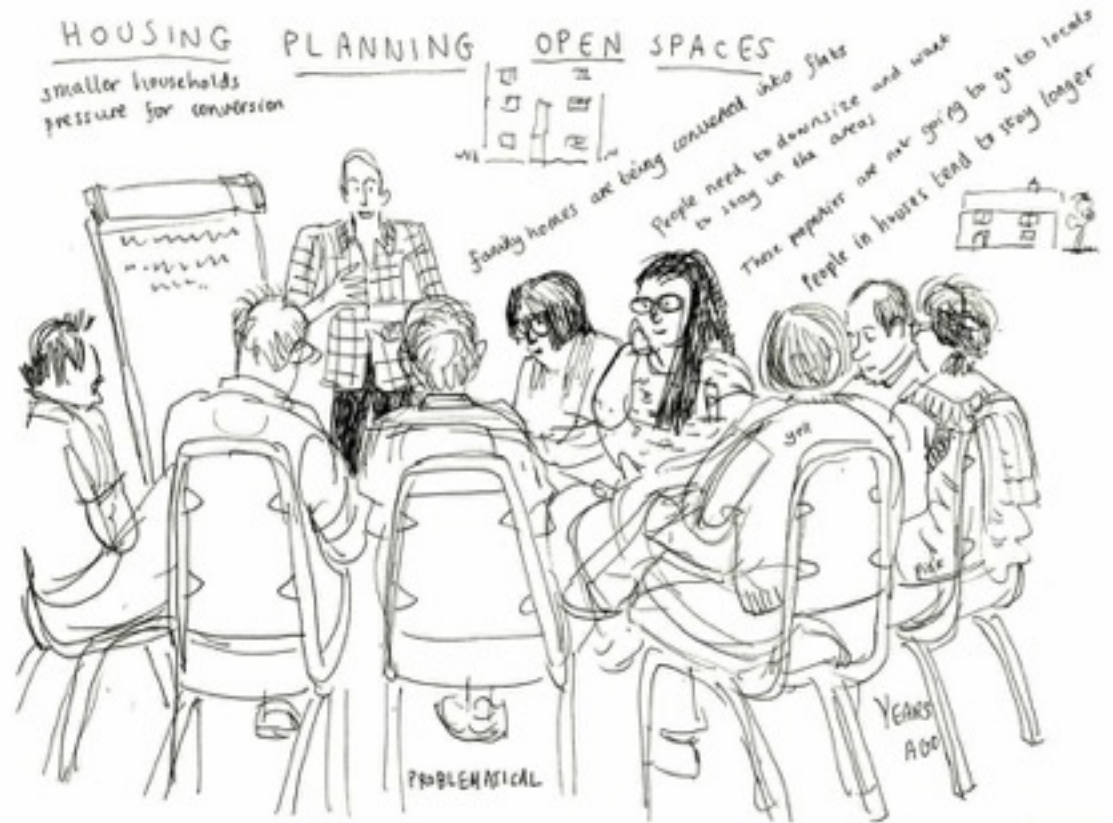 HOUSING PLANNING OPEN SPACES
smaller households
pressure for conversion
family homes are being converted into flats
People need to downsize and want
to stay in the areas
These properties are not going to go to locals
People in houses tend to stay longer
YEARS
AGO
PROBLEMATICAL